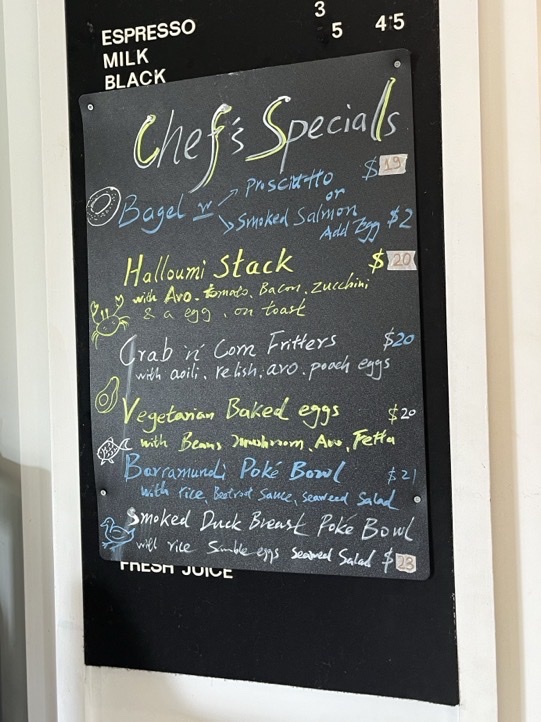 3
ESPRESSO
5 4.5
MILK
BLACK
Chef's Specials
Bagel w Prosciutto $19
or
Smoked Salmon
Add Egg $2
Halloumi Stack $20
with Avo. tomato, Bacon, Zucchini
& a egg, on toast
Crab 'n' Corn Fritters $20
with aoili, relish, avo, poach eggs
Vegetarian Baked eggs $20
with Beans, mushroom, Avo, Fetta
Barramundi Poké Bowl $21
with rice, Beetroot Sauce, seaweed Salad
Smoked Duck Breast Poke Bowl
with rice eggs seaweed Salad $23
FRESH JUICE